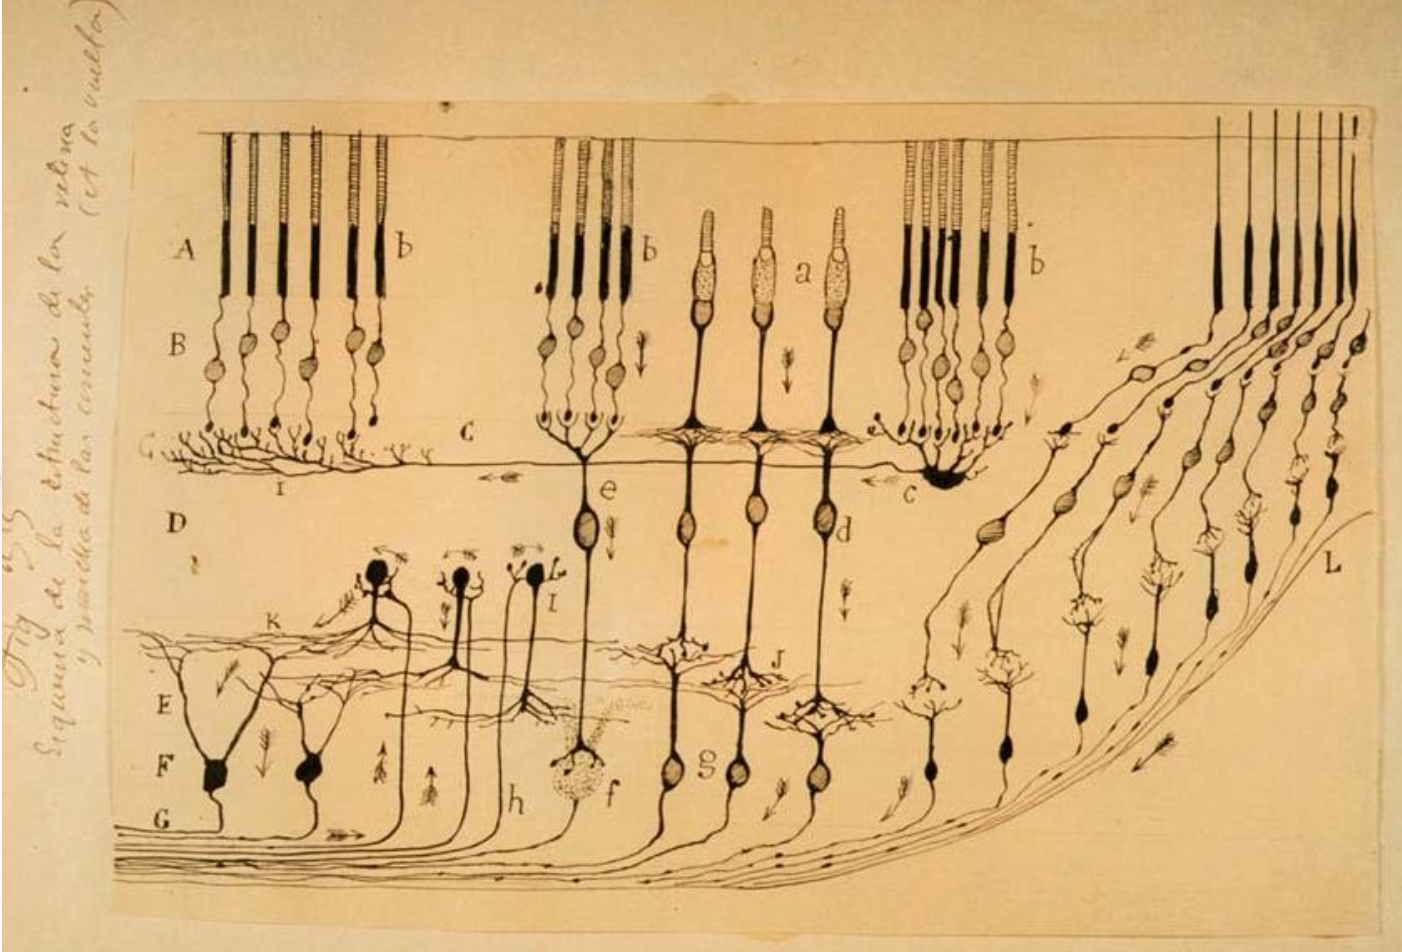 Fig
Esquema de la estructura de la retina
y mancha de las (et la vuelta)
A
b
b
a
b
B
C
C
I
e
c
D
d
L
I
K
J
E
F
g
f
h
G